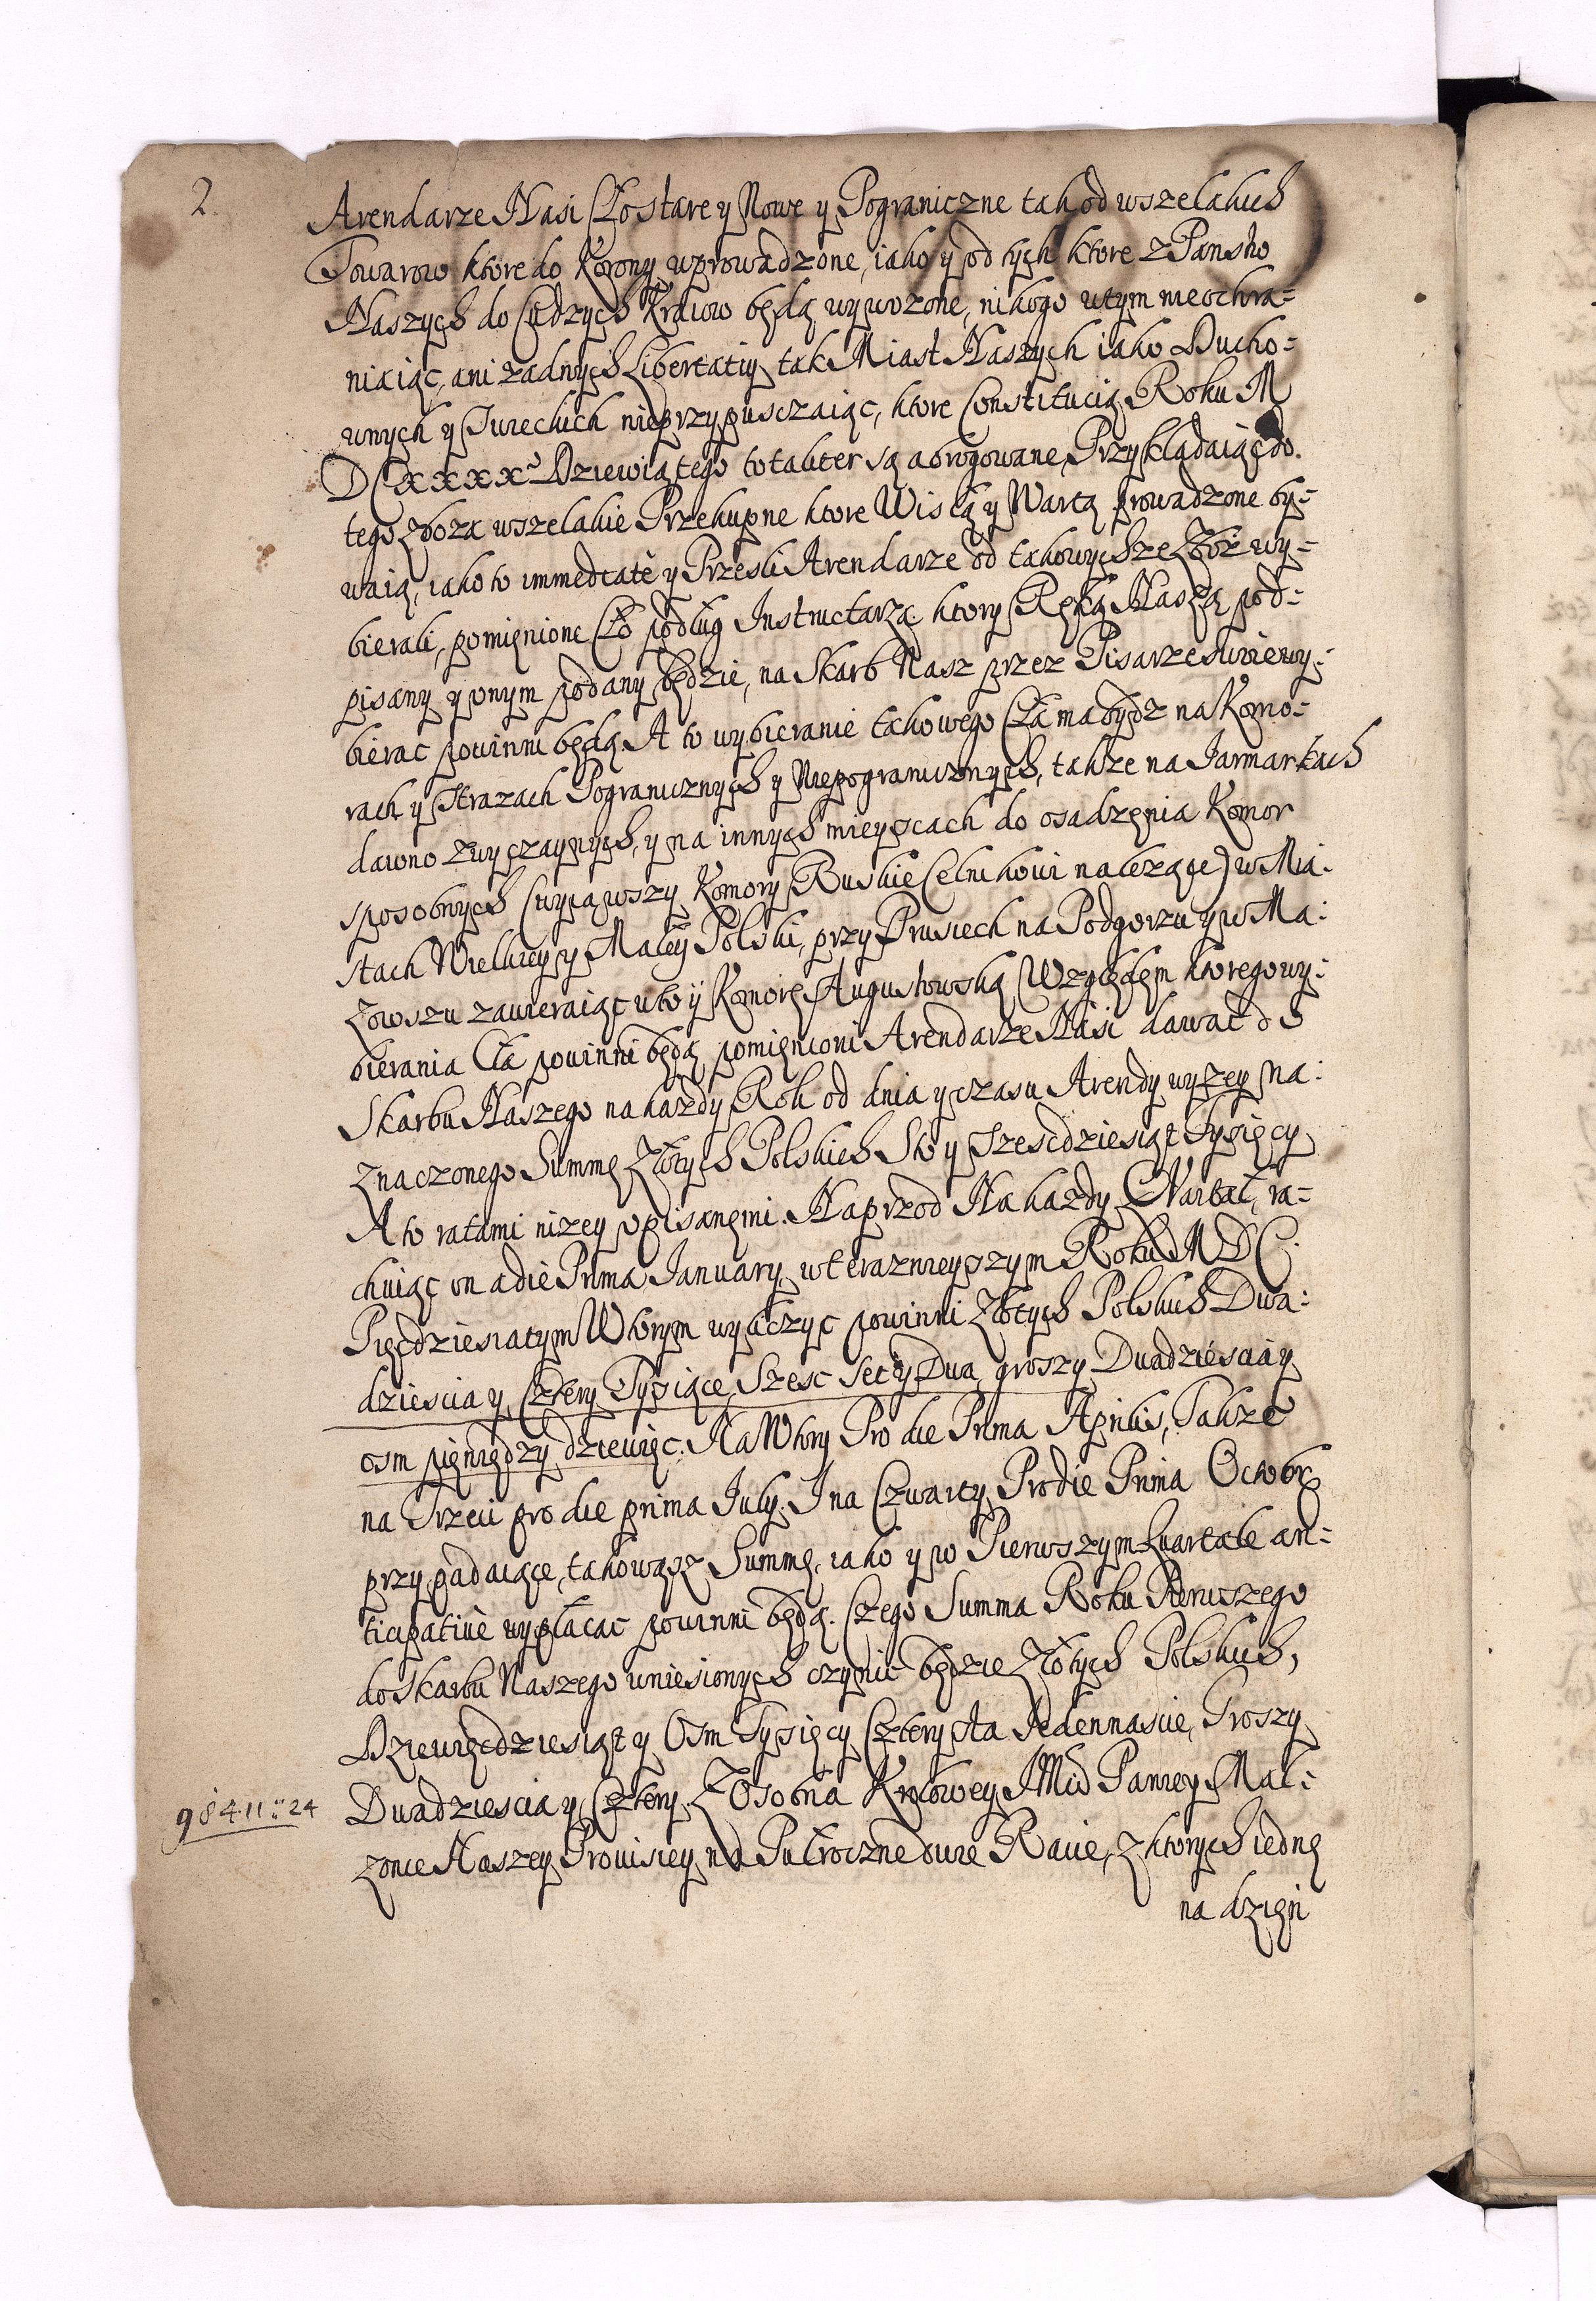 2.
Arendarze Nasi Cło stare y Nowe y Pograniczne tak od wszelakich
Towarow ktore do Korony wprowadzone, iako y od tych ktore z Panstw
Naszych do Cudzych Kraiow będą wywozone, nikogo wtym nieochra=
niaiąc, ani zadnych Libertatiy tak Miast Naszych iako Ducho=
wnych y Swieckich nieprzypuszczaiąc, ktore Constitucią Roku M
DCxxxxo Dziewiątego totaliter są abrogowane, Przykładaiąc do
tego zboza wszelakie Przekupne ktore Wisłą y Wartą prowadzone by=
waią, iako to immediatè y Przeszli Arendarze od takowychze Zboz wy=
bierali, pomienione Cło podług Instructarza ktory Ręką Naszą pod=
pisany y onym podany będzie, na Skarb Nasz przez Pisarze swie wy=
bierac powinni będą. A to wybieranie takowego Cła ma bydz na Komo=
rach y Strazach Pogranicznych y Niepogranicznych, takze na Jarmarkach
dawno zwyczaynych, y na innych mieyscach do osadzenia Komor
sposobnych (wyiąwszy Komory Ruskie Celnikowi nalezące) w Mia=
stach Wielkiey y Małey Polski, przy Prusiech na Podgorzu y w Ma=
zowszu zawieraiąc w to y Komorę Augustowską Względem ktorego wy=
bierania Cła powinni będą pomienieni Arendarze Nasi dawac do
Skarbu Naszego na kazdy Rok od dnia y czasu Arendy wyzey na=
znaczonego Summę Złotych Polskich Sto y Szescdziesiąt Tysięcy
A to ratami nizey opisanemi. Naprzod Na kazdy Quartał, ra=
chuiąc on a die Prima January w terazmieyszym Roku MDC.
Pięcdziesiatym Wtorym wyliczyc powinni Złotych Polskich Dwa=
dziescia y Cztery Tysiące Szesc Set y Dwa, groszy Dwadziescia y
osm pieniędzy dziewięc. Na Wtory Pro die Prima Aprilis, Takze
na Trzeci pro die prima July. I na Czwarty Pro die Prima Octobr
przypadaiące, takowąsz Summę, iako y po Pierwszym Kwartale an=
ticipativè wypłacac powinni będą. Czego Summa Roku Pierwszego
do Skarbu Naszego wniesionych czynic będzie Złotych Polskich,
Dziewięcdziesiąt y Osm Tysięcy Czterysta Iedennascie, Groszy
Dwadziescia y Cztery. Z Osobna Krolowey JMci Paniey Mał=
98411 :: 24
zonce Naszey Provisiey na Pułroczne dwie Racie, z ktorych iednę
na dzien